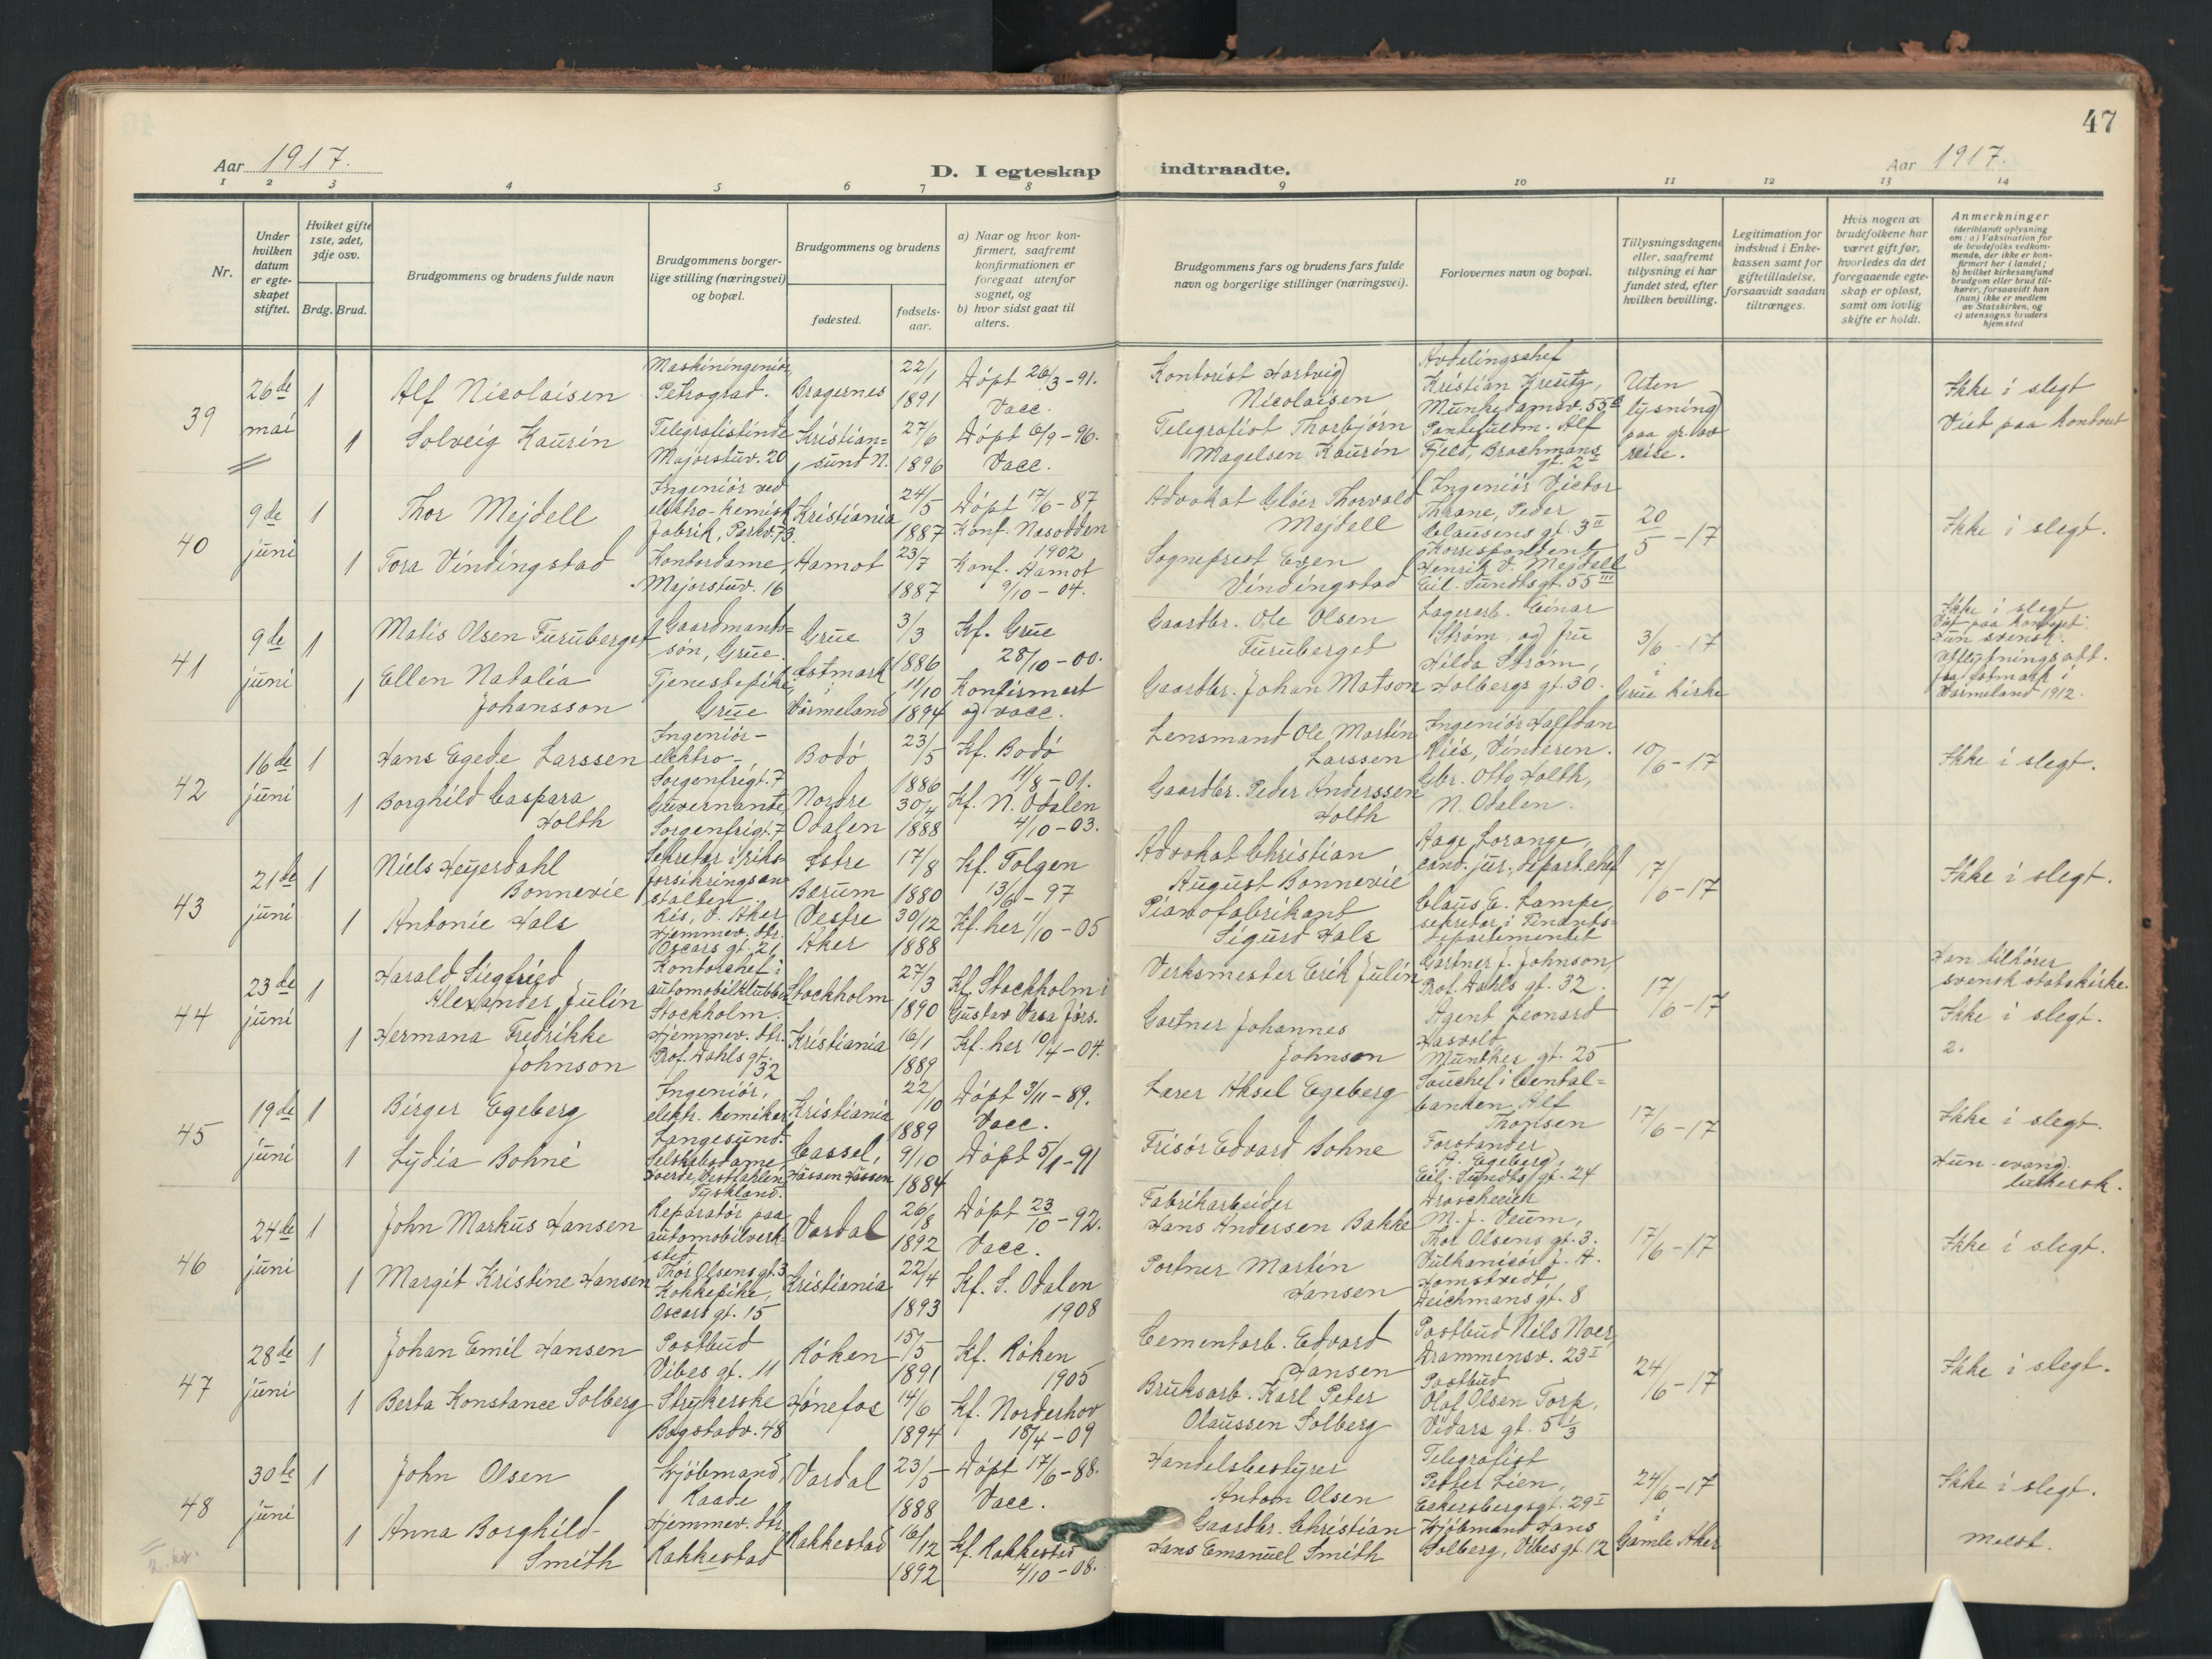 47
Aar 1917.
D. I egteskap indtraadte.
Aar 1917.
1 2 3 4 5 6 7 8 9 10 11 12 13 14
Nr.
Under hvilken datum er egteskapet stiftet.
Hvilket gifte 1ste, 2det, 3dje osv.
Brdg. Brud.
Brudgommens og brudens fulde navn
Brudgommens borgerlige stilling (næringsvei) og bopæl.
Brudgommens og brudens
fødested.
fødselsaar.
a) Naar og hvor konfirmert, saafremt konfirmationen er foregaat utenfor sognet, og
b) hvor sidst gaat til alters.
Brudgommens fars og brudens fars fulde navn og borgerlige stillinger (næringsvei).
Forlovernes navn og bopæl.
Tillysningsdagene eller, saafremt tillysning ei har fundet sted, efter hvilken bevilling.
Legitimation for indskud i Enkekassen samt for giftetilladelse, forsaavidt saadan tiltrænges.
Hvis nogen av brudefolkene har været gift før, hvorledes da det foregaaende egteskap er opløst, samt om lovlig skifte er holdt.
Anmerkninger (deriblandt oplysning om: a) Vaksination for de brudefolks vedkommende, der ikke er konfirmert her i landet; b) hvilket kirkesamfund brudgom eller brud tilhører, forsaavidt han (hun) ikke er medlem av Statskirken, og c) utensogns bruders hjemsted
39
26de mai
1
Alf Nicolaisen
Maskiningeniör, Petrograd.
Bragernes
22/1 1891
Döpt 26/3-91. Vacc.
Kontorist Hartvig Nicolaisen
Avdelingschef Kristian Kreutz, Munkedamsv. 55
Uten lysning paa gr. av reise.
Ikke i slegt
Viet paa kontoret
1
Solveig Kaurin
Telegrafistinde Majorstuv. 20
Kristiansund N.
27/6 1896
Döpt 6/9-96. Vacc.
Telegrafist Thorbjörn Magelsen Kaurin
Alf Fjeld, Brochmans gt. 2
40
9de juni
1
Thor Mejdell
Ingeniör ved elektro-kemisk fabrik, Parkv. 73.
Kristiania
24/5 1887
Döpt 17/6-87. Konf. Nesodden 1902
Advokat Glöer Thorvald Mejdell
Ingeniör Victor Thrane, Peder Clausens gt. 3 II
20/5-17
Ikke i slegt.
1
Tora Vindingstad
Kontordame, Majorstuv. 16
Aamot
23/7 1887
Konf. Aamot 9/10-04.
Sogneprest Even Vindingstad
Korrespondent Henrik V. Mejdell Eil. Sundtsgt. 55 III
41
9de juni
1
Matis Olsen Furuberget
Gaardmandssön, Grue.
Grue
3/3 1886
Kf. Grue 28/10-00.
Gaardbr. Ole Olsen Furuberget
Lagerarb. Einar Ström og fru Hilda Ström, Holbergs gt. 30.
3/6-17 i Grue kirke
Ikke i slegt
Viet paa kontoret.
Hun svensk.
Utflytningsatt. fra Östmark i Värmeland 1912.
1
Ellen Natalia Johansson
Tjenestepike, Grue
Östmark i Värmeland
11/10 1894
Konfirmert og vacc.
Gaardbr. Johan Matson
42
16de juni
1
Hans Egede Larssen
Ingeniör-elektro- Sorgenfrigt. 7
Bodö
23/5 1886
Kf. Bodö 11/8-01.
Lensmand Ole Martin Larssen
Ingeniör Halfdan Riis, Vinderen.
10/6-17
Ikke i slegt.
1
Borghild Caspara Holth
Guvernante, Sorgenfrigt. 7
Nordre Odalen
30/4 1888
Kf. N. Odalen 4/10-03.
Gaardbr. Peder Anderssen Holth
Gbr. Otto Holth, N. Odalen.
43
21de juni
1
Niels Heyerdahl Bonnevie
Sekretær i riksforsikringsanstalten, V. Aker
Östre Bærum
17/8 1880
Kf. Tolgen 13/6-97
Advokat Christian August Bonnevie
Aage Lorange, cand. jur., depart.chef
17/6-17
Ikke i slegt.
1
Antonie Hals
Hjemmev. dtr. Oscars gt. 21
Vestre Aker
30/12 1888
Kf. her 1/10-05
Pianofabrikant Sigurd Hals
Claus E. Lampe, sekretær i Finansdepartementet
44
23de juni
1
Harald Siegfried Alexander Julin
Kontorchef i automobilklubben Stockholm.
Stockholm
27/3 1890
Kf. Stockholm i Gustav Vasa förs.
Verksmester Erik Julin
Gartner J. Johnson, Prof. Dahls gt. 32.
17/6-17
Han tilhörer svensk statskirke.
Ikke i slegt.
2.
1
Hermana Fredrikke Johnson
Hjemmev. dtr. Prof. Dahls gt. 32
Kristiania
16/1 1889
Kf. her 10/4-04.
Gartner Johannes Johnson
Agent Leonard Hasvold, Munthes gt. 25
45
19de juni
1
Birger Egeberg
Ingeniör, elektr. kemiker, Langesund.
Kristiania
22/10 1889
Döpt 3/11-89. Vacc.
Lærer Aksel Egeberg
Souchef i Centralbanken Alf Thomsen
17/6-17
Ikke i slegt.
1
Lydia Bohne
Selskabsdame, Voerde, Vestfahlen, Tyskland.
Cassel, Hessen Nassen
9/10 1884
Döpt 5/1-91
Frisör Edvard Bohne
Forstander A. Egeberg, Eil. Sundts gt. 24
Hun evang. luthersk.
46
24de juni
1
John Markus Hansen
Reparatör paa automobilverksted Thor Olsens gt. 3
Vardal
26/8 1892
Döpt 23/10-92. Vacc.
Fabrikarbeider Hans Andersen Bakke
Droscheeier M. J. Veum, Thor Olsens gt. 3.
17/6-17
Ikke i slegt.
1
Margit Kristine Hansen
Kokkepike, Oscars gt. 15
Kristiania
22/4 1893
Kf. S. Odalen 1908
Portner Martin Hansen
Vulkanisör J. A. Homstvedt, Deichmans gt. 8
47
28de juni
1
Johan Emil Hansen
Postbud Vibes gt. 11
Röken
15/5 1891
Kf. Röken 1905
Cementarb. Edvard Hansen
Postbud Nils Noer, Drammensv. 23 I
24/6-17
Ikke i slegt.
1
Berta Konstance Solberg
Strykerske Bogstadv. 48
Hönefos
14/6 1894
Kf. Norderhov 18/4-09
Bruksarb. Karl Peter Olaussen Solberg
Postbud Olaf Olsen Torp, Vidars gt. 5
48
30te juni
1
John Olsen
Kjöbmand, Raade
Vardal
23/5 1888
Döpt 17/6-88. Vacc.
Handelsbestyrer Anton Olsen
Telegrafist Petter Lien, Eckersbergsgt. 29 I
24/6-17 i Gamle Aker
Ikke i slegt.
Meldt.
1
Anna Borghild Smith
Hjemmev. dtr. Rakkestad
Rakkestad
16/12 1892
Kf. Rakkestad 4/10-08.
Gaardbr. Christian Hans Emanuel Smith
Kjöbmand Hans Solberg, Vibes gt 12
2. kv.